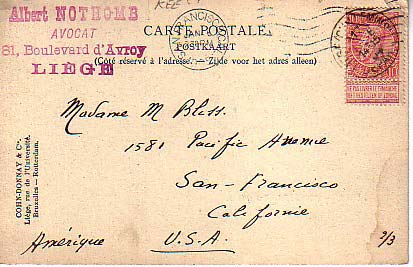 Albert NOTHOMB
AVOCAT
81, Boulevard d'Avroy
LIÈGE
CARTE POSTALE
POSTKAART
(Côté réservé à l'adresse. — Zijde voor het adres alleen)
SAN FRANCISCO
Madame M Bliss.
1581 Pacific Avenue
San-Francisco
Californie
U.S.A.
Amérique
2/3
COHN-DONNAY & Cie.
Liège, rue de l'Université.
Bruxelles — Rotterdam.